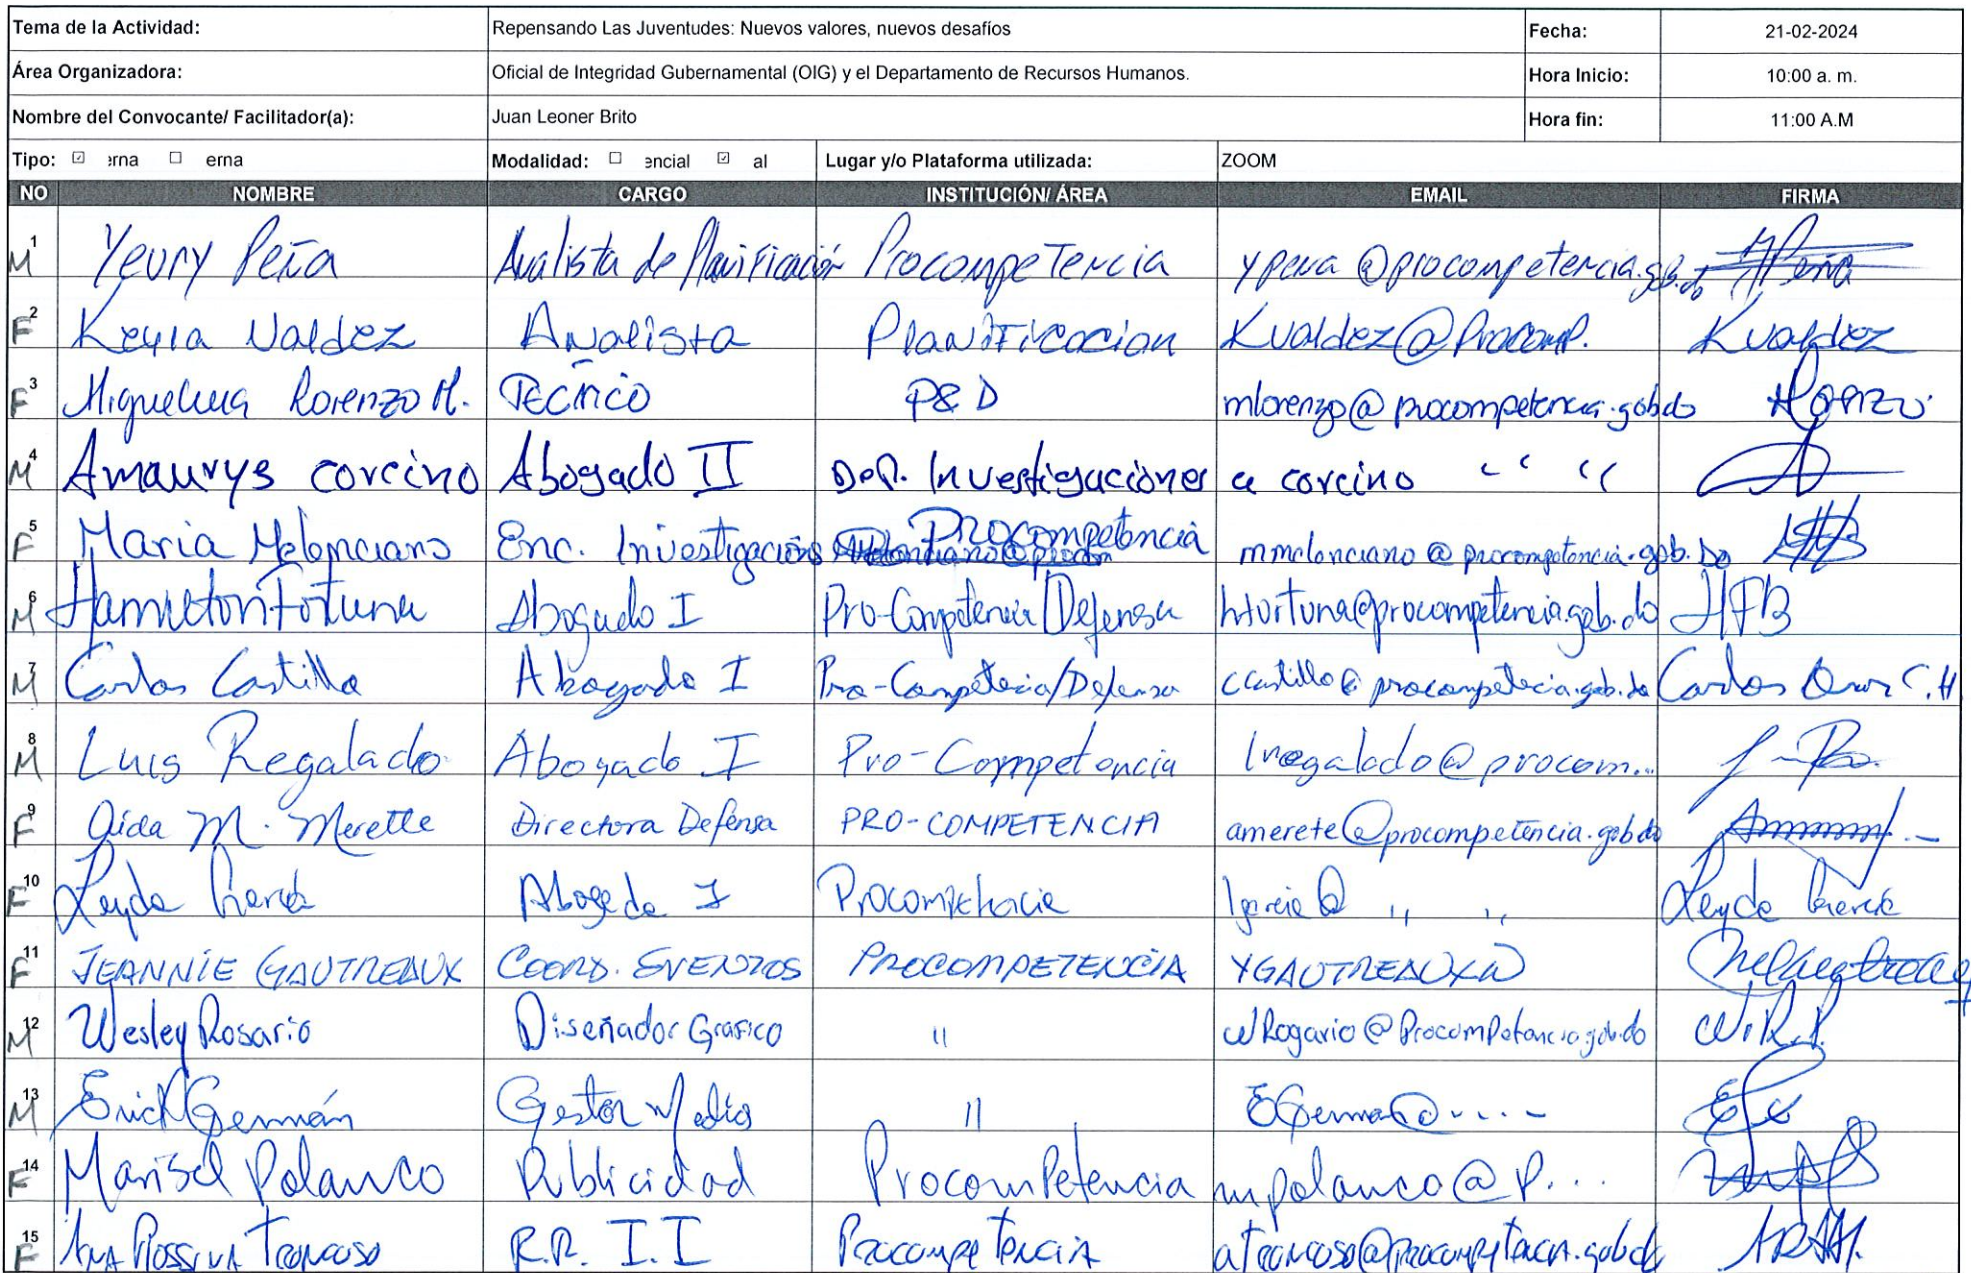 Tema de la Actividad: Repensando Las Juventudes: Nuevos valores, nuevos desafíos Fecha: 21-02-2024
Área Organizadora: Oficial de Integridad Gubernamental (OIG) y el Departamento de Recursos Humanos. Hora Inicio: 10:00 a. m.
Nombre del Convocante/ Facilitador(a): Juan Leoner Brito Hora fin: 11:00 A.M
Tipo: ☑ erna ☐ erna Modalidad: ☐ encial ☑ al Lugar y/o Plataforma utilizada: ZOOM
NO NOMBRE CARGO INSTITUCIÓN/ ÁREA EMAIL FIRMA
M 1 Yeury Peña Analista de Planificación Procompetencia ypena@procompetencia.gob.do YPeña
F 2 Keyla Valdez Analista Planificacion Kvaldez@Procomp. Kvaldez
F 3 Miguelina Lorenzo M. Técnico P&D mlorenzo@procompetencia.gob.do
M 4 Amaurys corcino Abogado II Dep. Investigaciones a corcino " "
F 5 Maria Melenciano Enc. Investigación Procompetencia mmelenciano@procompetencia.gob.Do
M 6 Hamilton Fortuna Abogado I Pro-Competencia/Defensa hfortuna@procompetencia.gob.do HFB
M 7 Carlos Castillo Abogado I Pro-Competecia/Defensa ccastillo@procompetecia.gob.do Carlos C.H
M 8 Luis Regalado Abogado I Pro-Competencia lregalado@procom...
F 9 Aida M. Merette Directora Defensa PRO-COMPETENCIA amerete@procompetencia.gob.do
F 10 Leyda García Abogada I Procompetencia lgarcia@ " " Leyda García
F 11 JEANNIE GAUTREAUX COORD. EVENTOS PROCOMPETENCIA YGAUTREAUX@
M 12 Wesley Rosario Diseñador Grafico " WRosario@Procompetencia.gob.do W.R.P.
M 13 Erick Germán Gestor Medios " EGerman@....
F 14 Marisol Polanco Publicidad Procompetencia mpolanco@P...
F 15 Ana Rossina Troncoso R.R. I.I Procompetencia atroncoso@procompetencia.gob.do